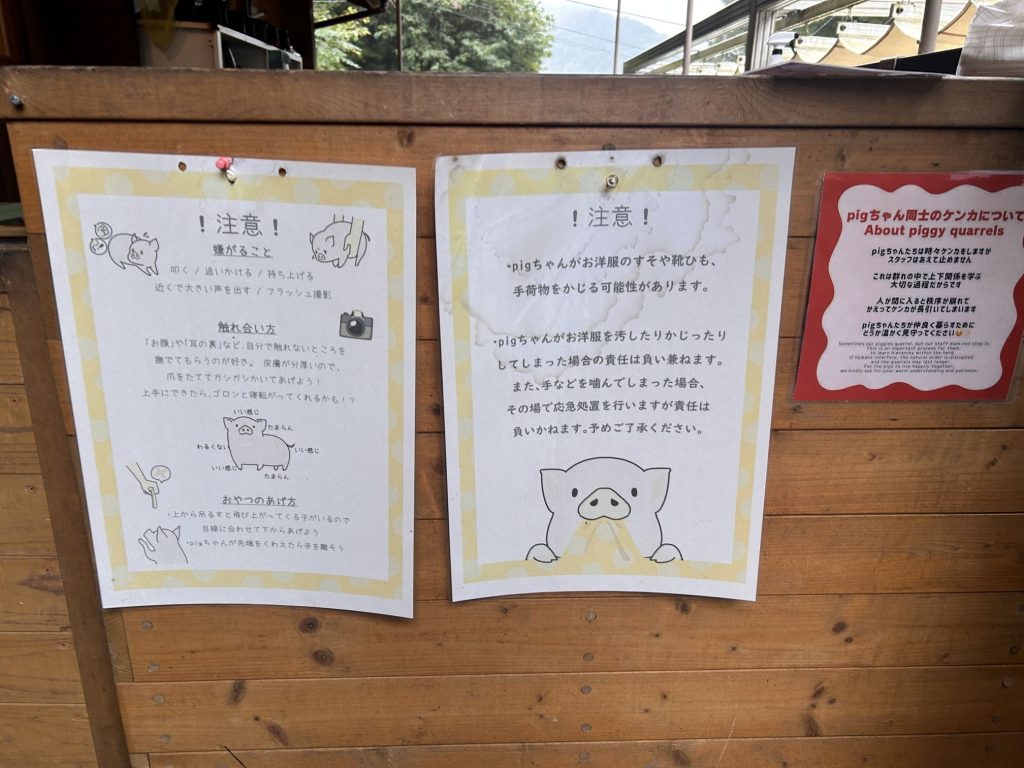 ！注意！
嫌がること
叩く / 追いかける / 持ち上げる
近くで大きい声を出す / フラッシュ撮影
触れ合い方
「お腹」や「耳の裏」など、自分で触れないところを
撫でてもらうのが好き。 皮膚が分厚いので、
爪をたててガシガシかいてあげよう！
上手にできたら、ゴロンと寝転がってくれるかも！？
いい感じ
たまらん
わるくない
いい感じ
いい感じ
たまらん
おやつのあげ方
・上から吊るすと飛び上がってくる子がいるので
目線に合わせて下からあげよう
・pigちゃんが先端をくわえたら手を離そう
！注意！
・pigちゃんがお洋服のすそや靴ひも、
手荷物をかじる可能性があります。
・pigちゃんがお洋服を汚したりかじったり
してしまった場合の責任は負い兼ねます。
また、手などを噛んでしまった場合、
その場で応急処置を行いますが責任は
負いかねます。予めご了承ください。
pigちゃん同士のケンカについて
About piggy quarrels
pigちゃんたちは時々ケンカをしますが
スタッフはあえて止めません
これは群れの中で上下関係を学ぶ
大切な過程だからです
人が間に入ると秩序が崩れて
かえってケンカが長引いてしまいます
pigちゃんたちが仲良く暮らすために
どうか温かく見守ってください
Sometimes our piggies quarrel, but our staff does not step in.
This is an important process for them
to learn hierarchy within the herd.
If humans interfere, the natural order is disrupted
and the quarrels may last longer.
For the pigs to live happily together,
we kindly ask for your warm understanding and patience.